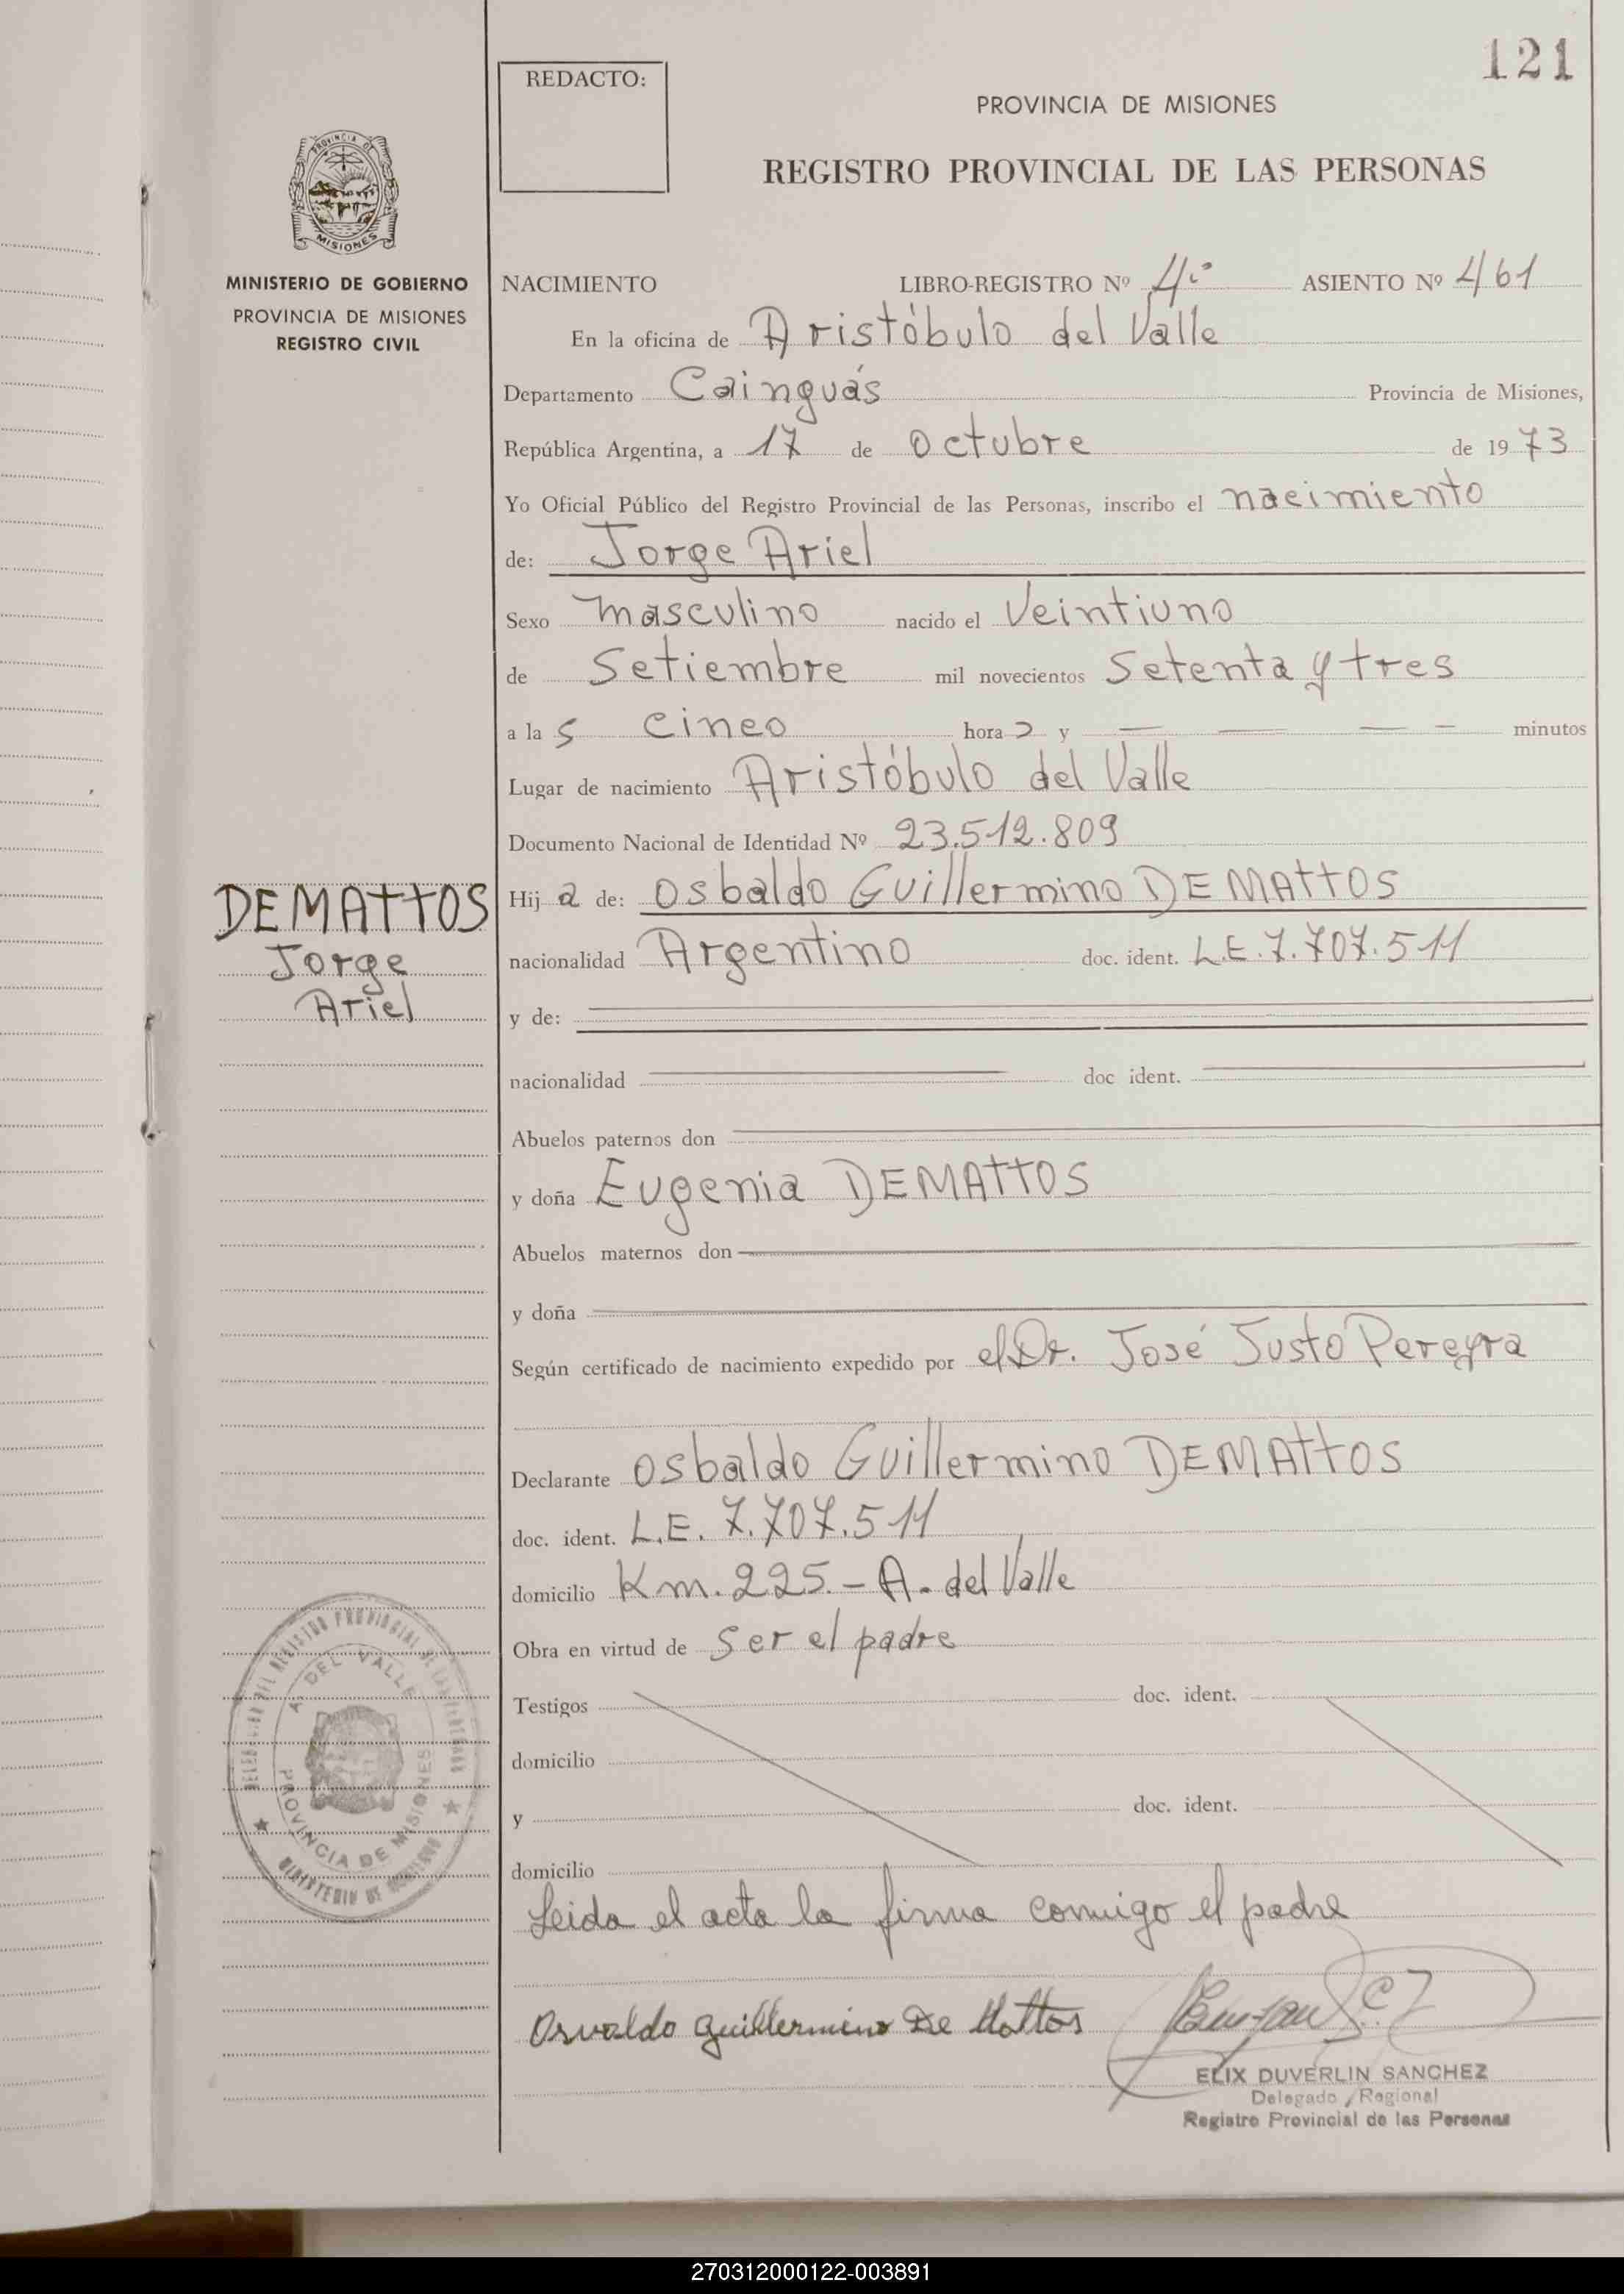 121
REDACTO:
PROVINCIA DE MISIONES
REGISTRO PROVINCIAL DE LAS PERSONAS
PROVINCIA DE
MISIONES
MINISTERIO DE GOBIERNO
PROVINCIA DE MISIONES
REGISTRO CIVIL
NACIMIENTO LIBRO-REGISTRO Nº 4º ASIENTO Nº 461
En la oficina de Aristóbulo del Valle
Departamento Cainguás Provincia de Misiones,
República Argentina, a 17 de octubre de 1973
Yo Oficial Público del Registro Provincial de las Personas, inscribo el nacimiento
de: Jorge Ariel
Sexo masculino nacido el Veintiuno
de Setiembre mil novecientos Setenta y tres
a la s cinco hora s y — — — — minutos
Lugar de nacimiento Aristóbulo del Valle
Documento Nacional de Identidad Nº 23.512.809
DEMATTOS
Jorge
Ariel
Hij a de: Osbaldo Guillermino DEMATTOS
nacionalidad Argentino doc. ident. L.E. 7.707.511
y de:
nacionalidad doc ident.
Abuelos paternos don
y doña Eugenia DEMATTOS
Abuelos maternos don
y doña
Según certificado de nacimiento expedido por el Dr. José Justo Pereyra
Declarante Osbaldo Guillermino DEMATTOS
doc. ident. L.E. 7.707.511
domicilio Km. 225.- A. del Valle
Obra en virtud de Ser el padre
Testigos doc. ident.
domicilio
y doc. ident.
domicilio
DEL REGISTRO PROVINCIAL DE LAS PERSONAS
A. DEL VALLE
PROVINCIA DE MISIONES
MINISTERIO DE GOBIERNO
Leida el acta la firma conmigo el padre
Osvaldo Guillermino De Mattos
ELIX DUVERLIN SANCHEZ
Delegado Regional
Registro Provincial de las Personas
270312000122-003891